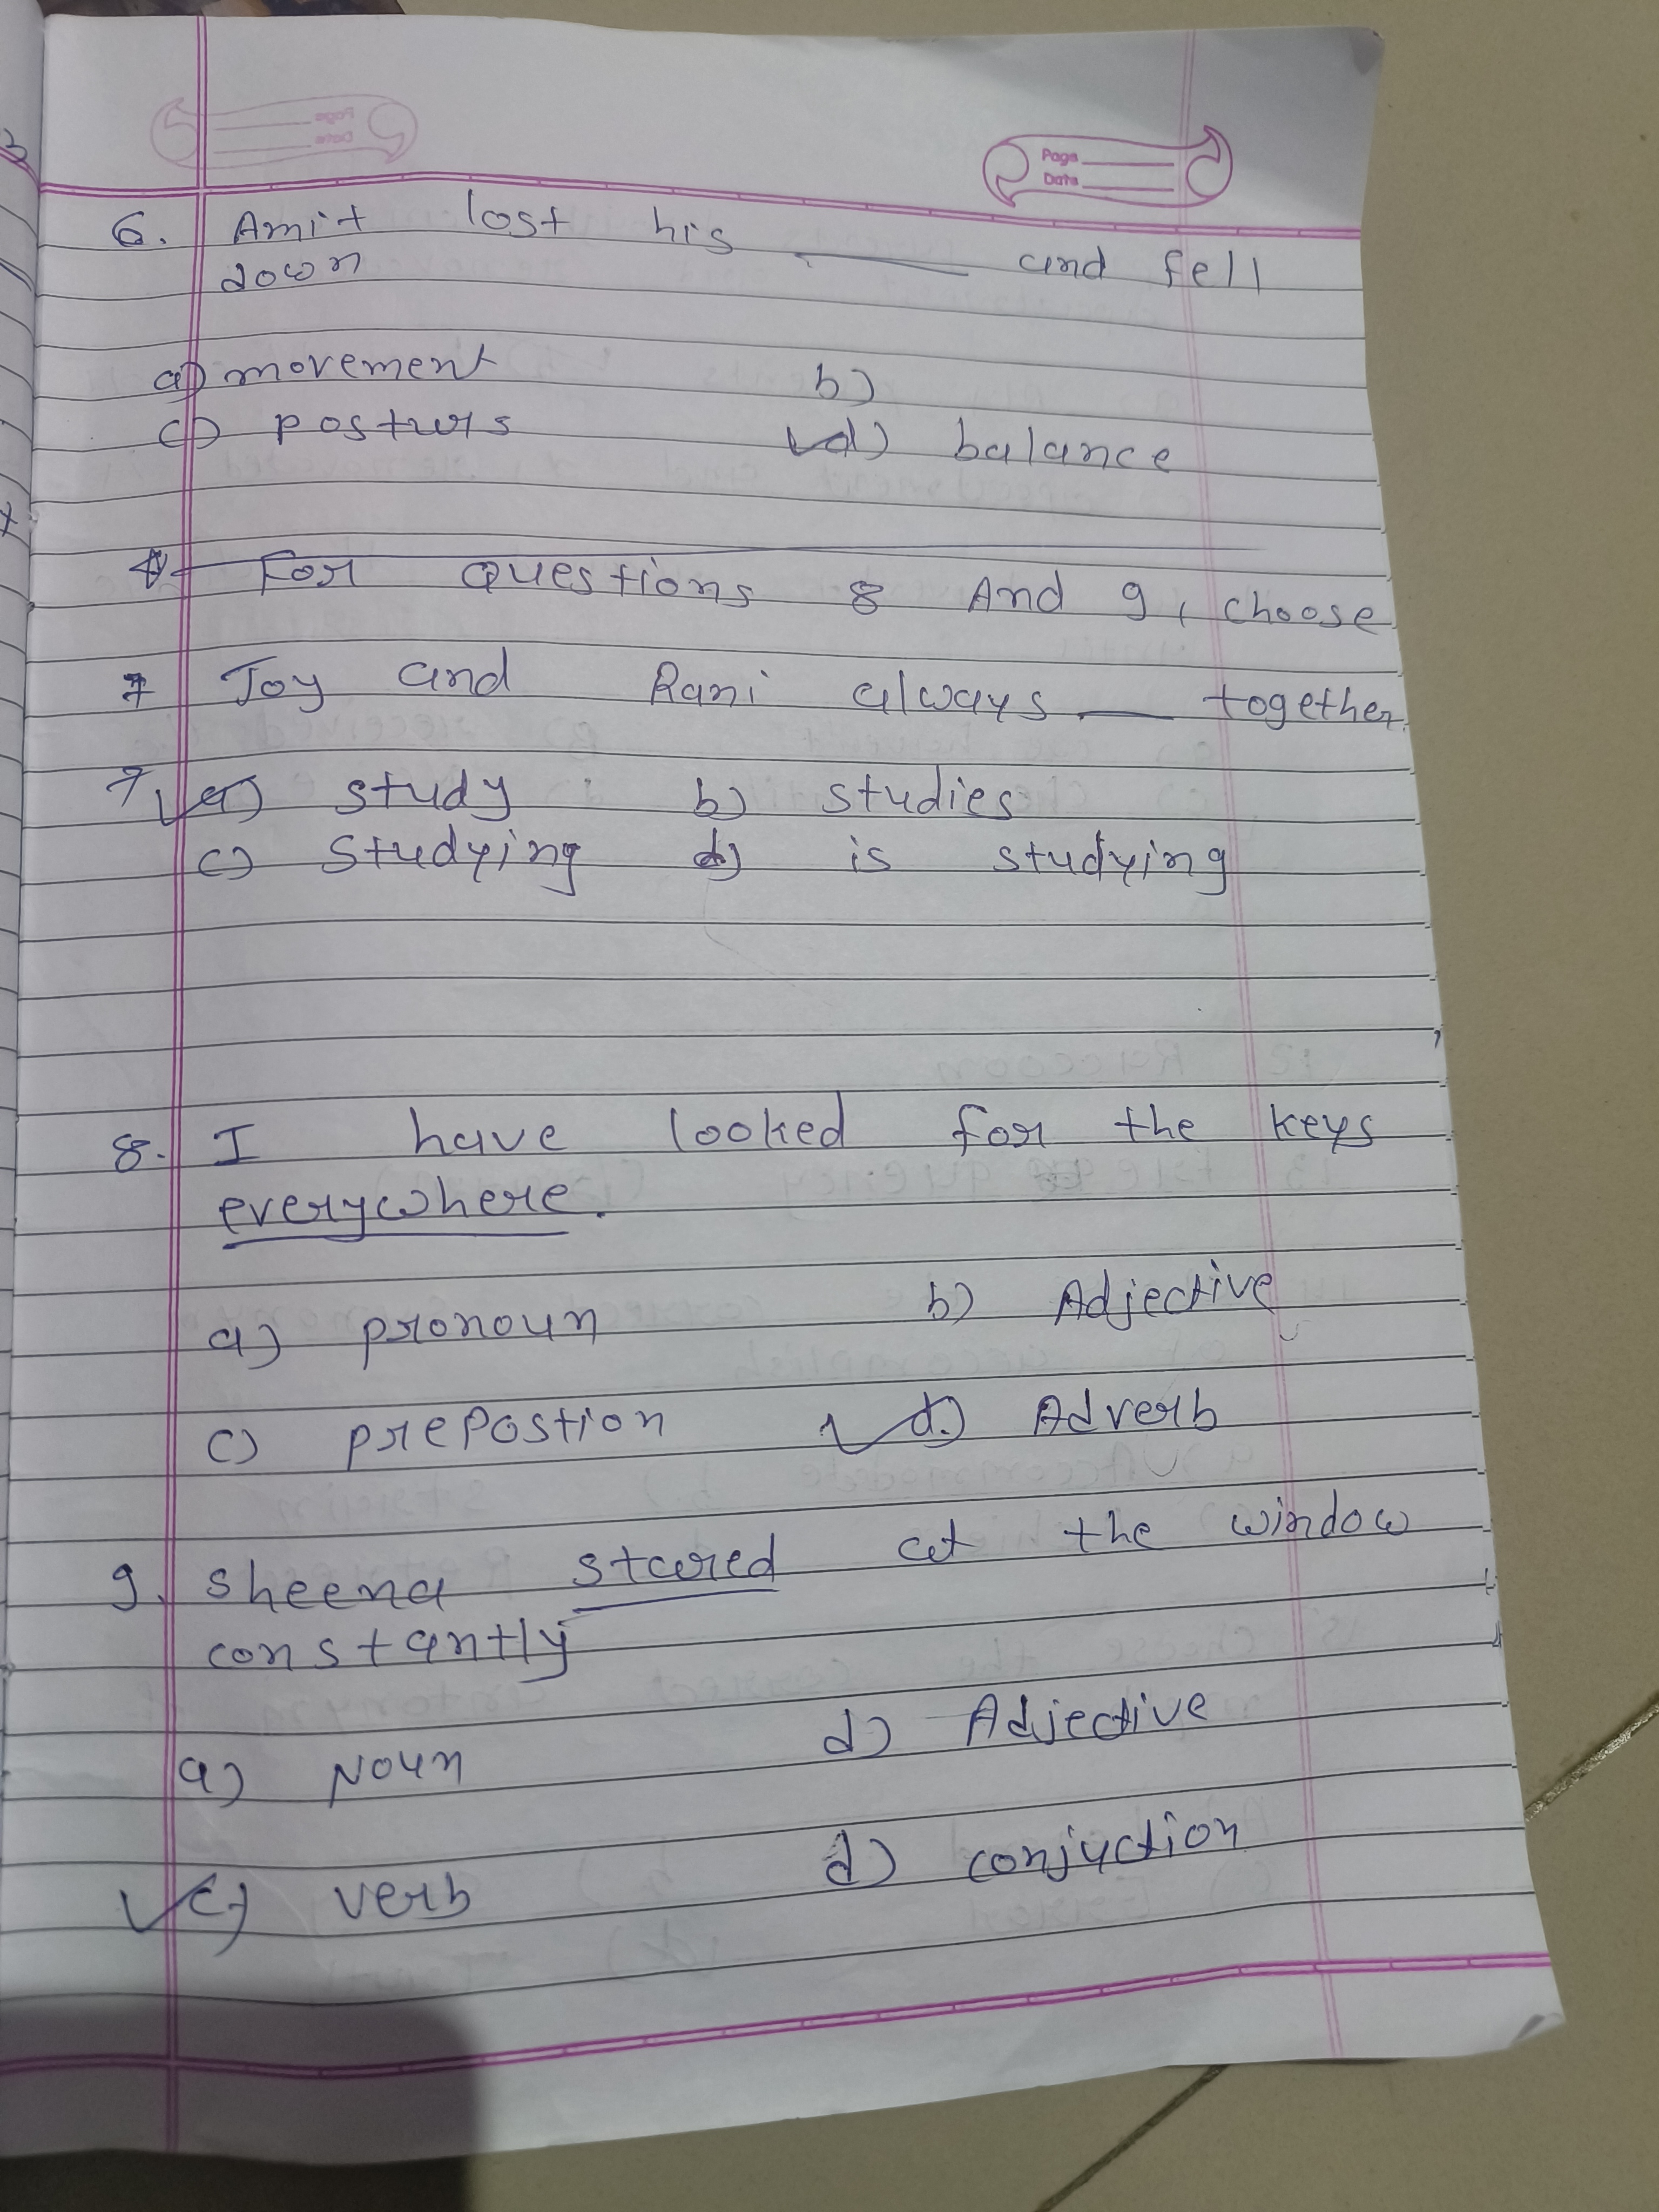 Page
Date
6. Amit lost his ___ and fell
down
a) movement b)
c) posturs d) balance
For questions 8 And 9, choose
7 Joy and Rani always ___ together.
7 a) study b) studies
c) studying d) is studying
8. I have looked for the keys
everywhere.
a) pronoun b) Adjective
c) prepostion d.) Adverb
9. Sheena stared at the window
constantly
a) Noun d) Adjective
c) verb d) conjuction